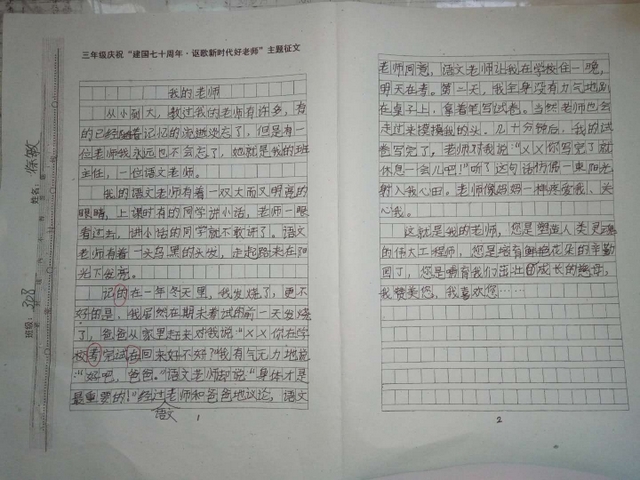 三年级庆祝“建国七十周年·讴歌新时代好老师”主题征文
姓名:
班级:308
我的老师
从小到大,教过我的老师有许多,有
的已经随着记忆的海逝淡忘了,但是有一
位老师我永远也不会忘了,她就是我的班
主任,一位语文老师。
我的语文老师有着一双大而又明亮的
眼睛,上课时有的同学讲小话,老师一眼
看过去,讲小话的同学就不敢讲了。语文
老师有着一头乌黑的头发,走起路来在阳
光下发亮。
记的在一年冬天里,我发烧了,更不
好的是,我居然在期末考试的前一天发烧
了,爸爸从家里赶来对我说“XX你在学
校考完试在回来好不好?”我有气无力地说
:“好吧,爸爸。”语文老师却说“身体才是
最重要的!”经过老师和爸爸地议论,语文
语文
1
老师同意,语文老师让我在学校住一晚,
明天在考。第二天,我全身没有力气地趴
在桌子上,拿着笔写试卷。当然老师也会
走过来摸摸我的头。几十分钟后,我的试
卷写完了,老师对我说:“XX你写完了就
休息一会儿吧!”听了这句话仿佛一束阳光
射入我心田。老师像妈妈一样疼爱我、关
心我。
这就是我的老师,您是塑造人类灵魂
的伟大工程师,您是培育鲜艳花朵的辛勤
园丁,您是哺育我们茁壮成长的慈母。
我赞美您,我喜欢您……
2